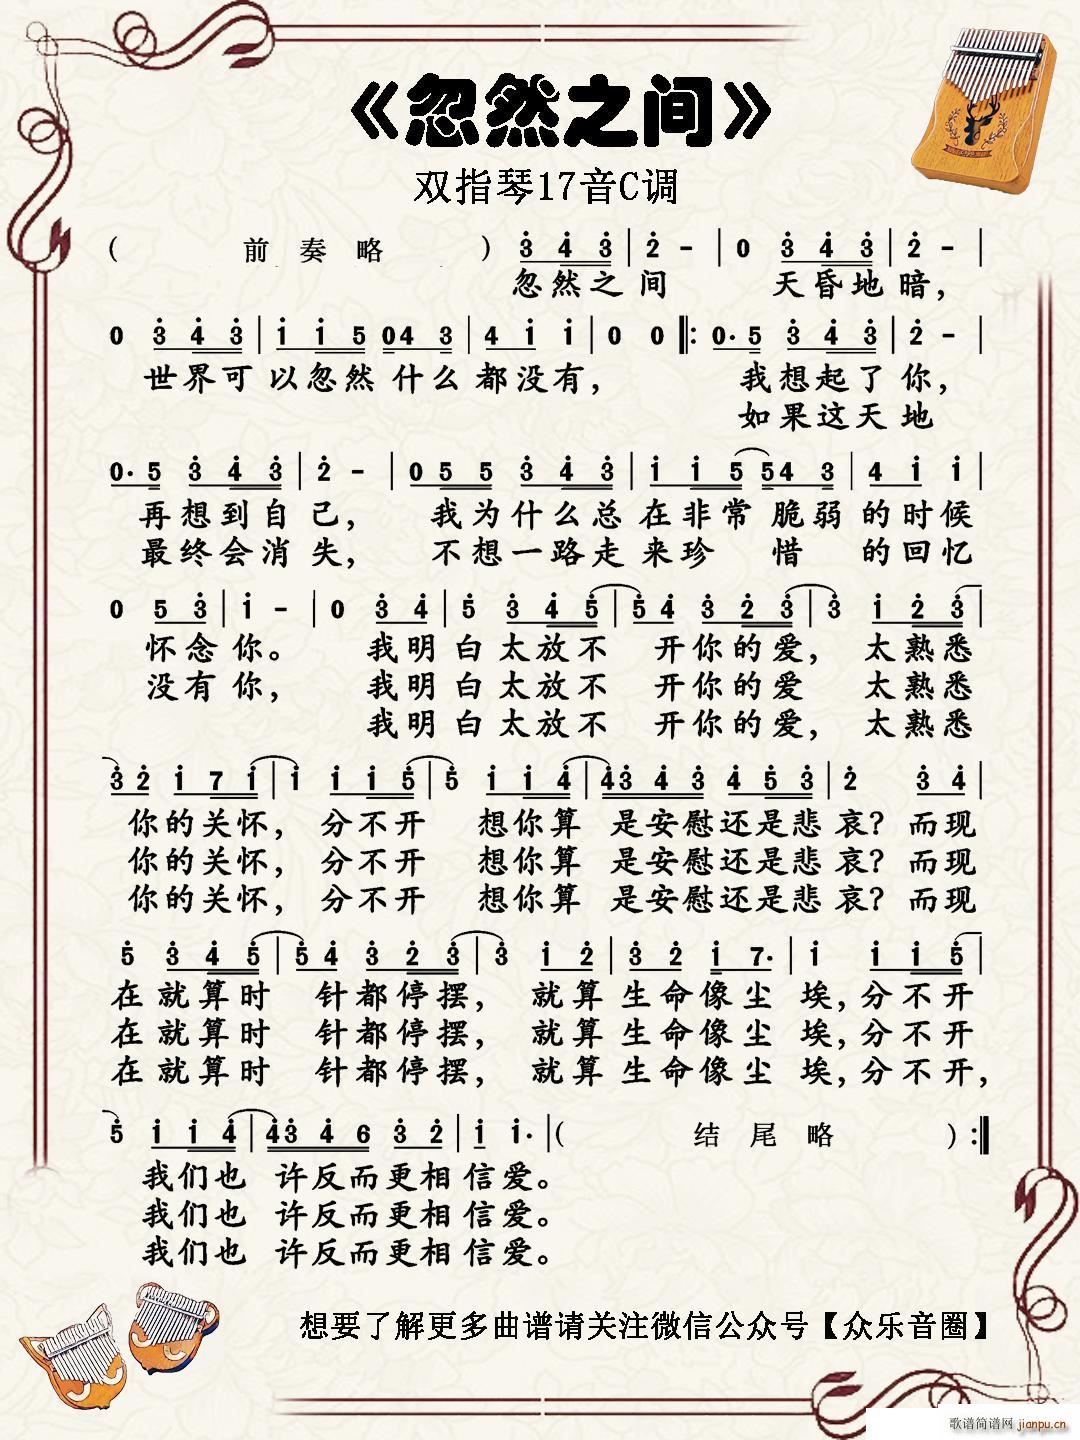 《忽然之间》
双指琴17音C调
( 前奏略 ) 3 4 3 | 2 - | 0 3 4 3 | 2 - |
忽然之间 天昏地暗，
0 3 4 3 | i i 5 04 3 | 4 i i | 0 0 ‖: 0· 5 3 4 3 | 2 - |
世界可以忽然什么都没有， 我想起了你，
如果这天地
0· 5 3 4 3 | 2 - | 0 5 5 3 4 3 | i i 5 54 3 | 4 i i |
再想到自己， 我为什么总在非常脆弱的时候
最终会消失， 不想一路走来珍惜的回忆
0 5 3 | i - | 0 3 4 | 5 3 4 5 | 5 4 3 2 3 | 3 i 2 3 |
怀念你。 我明白太放不开你的爱， 太熟悉
没有你， 我明白太放不开你的爱 太熟悉
我明白太放不开你的爱， 太熟悉
3 2 i 7 i | i i i 5 | 5 i i 4 | 43 4 3 4 5 3 | 2 3 4 |
你的关怀， 分不开 想你算 是安慰还是悲哀？而现
你的关怀， 分不开 想你算 是安慰还是悲哀？而现
你的关怀， 分不开 想你算 是安慰还是悲哀？而现
5 3 4 5 | 5 4 3 2 3 | 3 i 2 | 3 2 i 7· | i i i 5 |
在就算时 针都停摆， 就算生命像尘埃，分不开
在就算时 针都停摆， 就算生命像尘埃，分不开
在就算时 针都停摆， 就算生命像尘埃，分不开，
5 i i 4 | 43 4 6 3 2 | i i· | ( 结尾略 ) :‖
我们也许反而更相信爱。
我们也许反而更相信爱。
我们也许反而更相信爱。
想要了解更多曲谱请关注微信公众号【众乐音圈】
歌谱简谱网 jianpu.cn